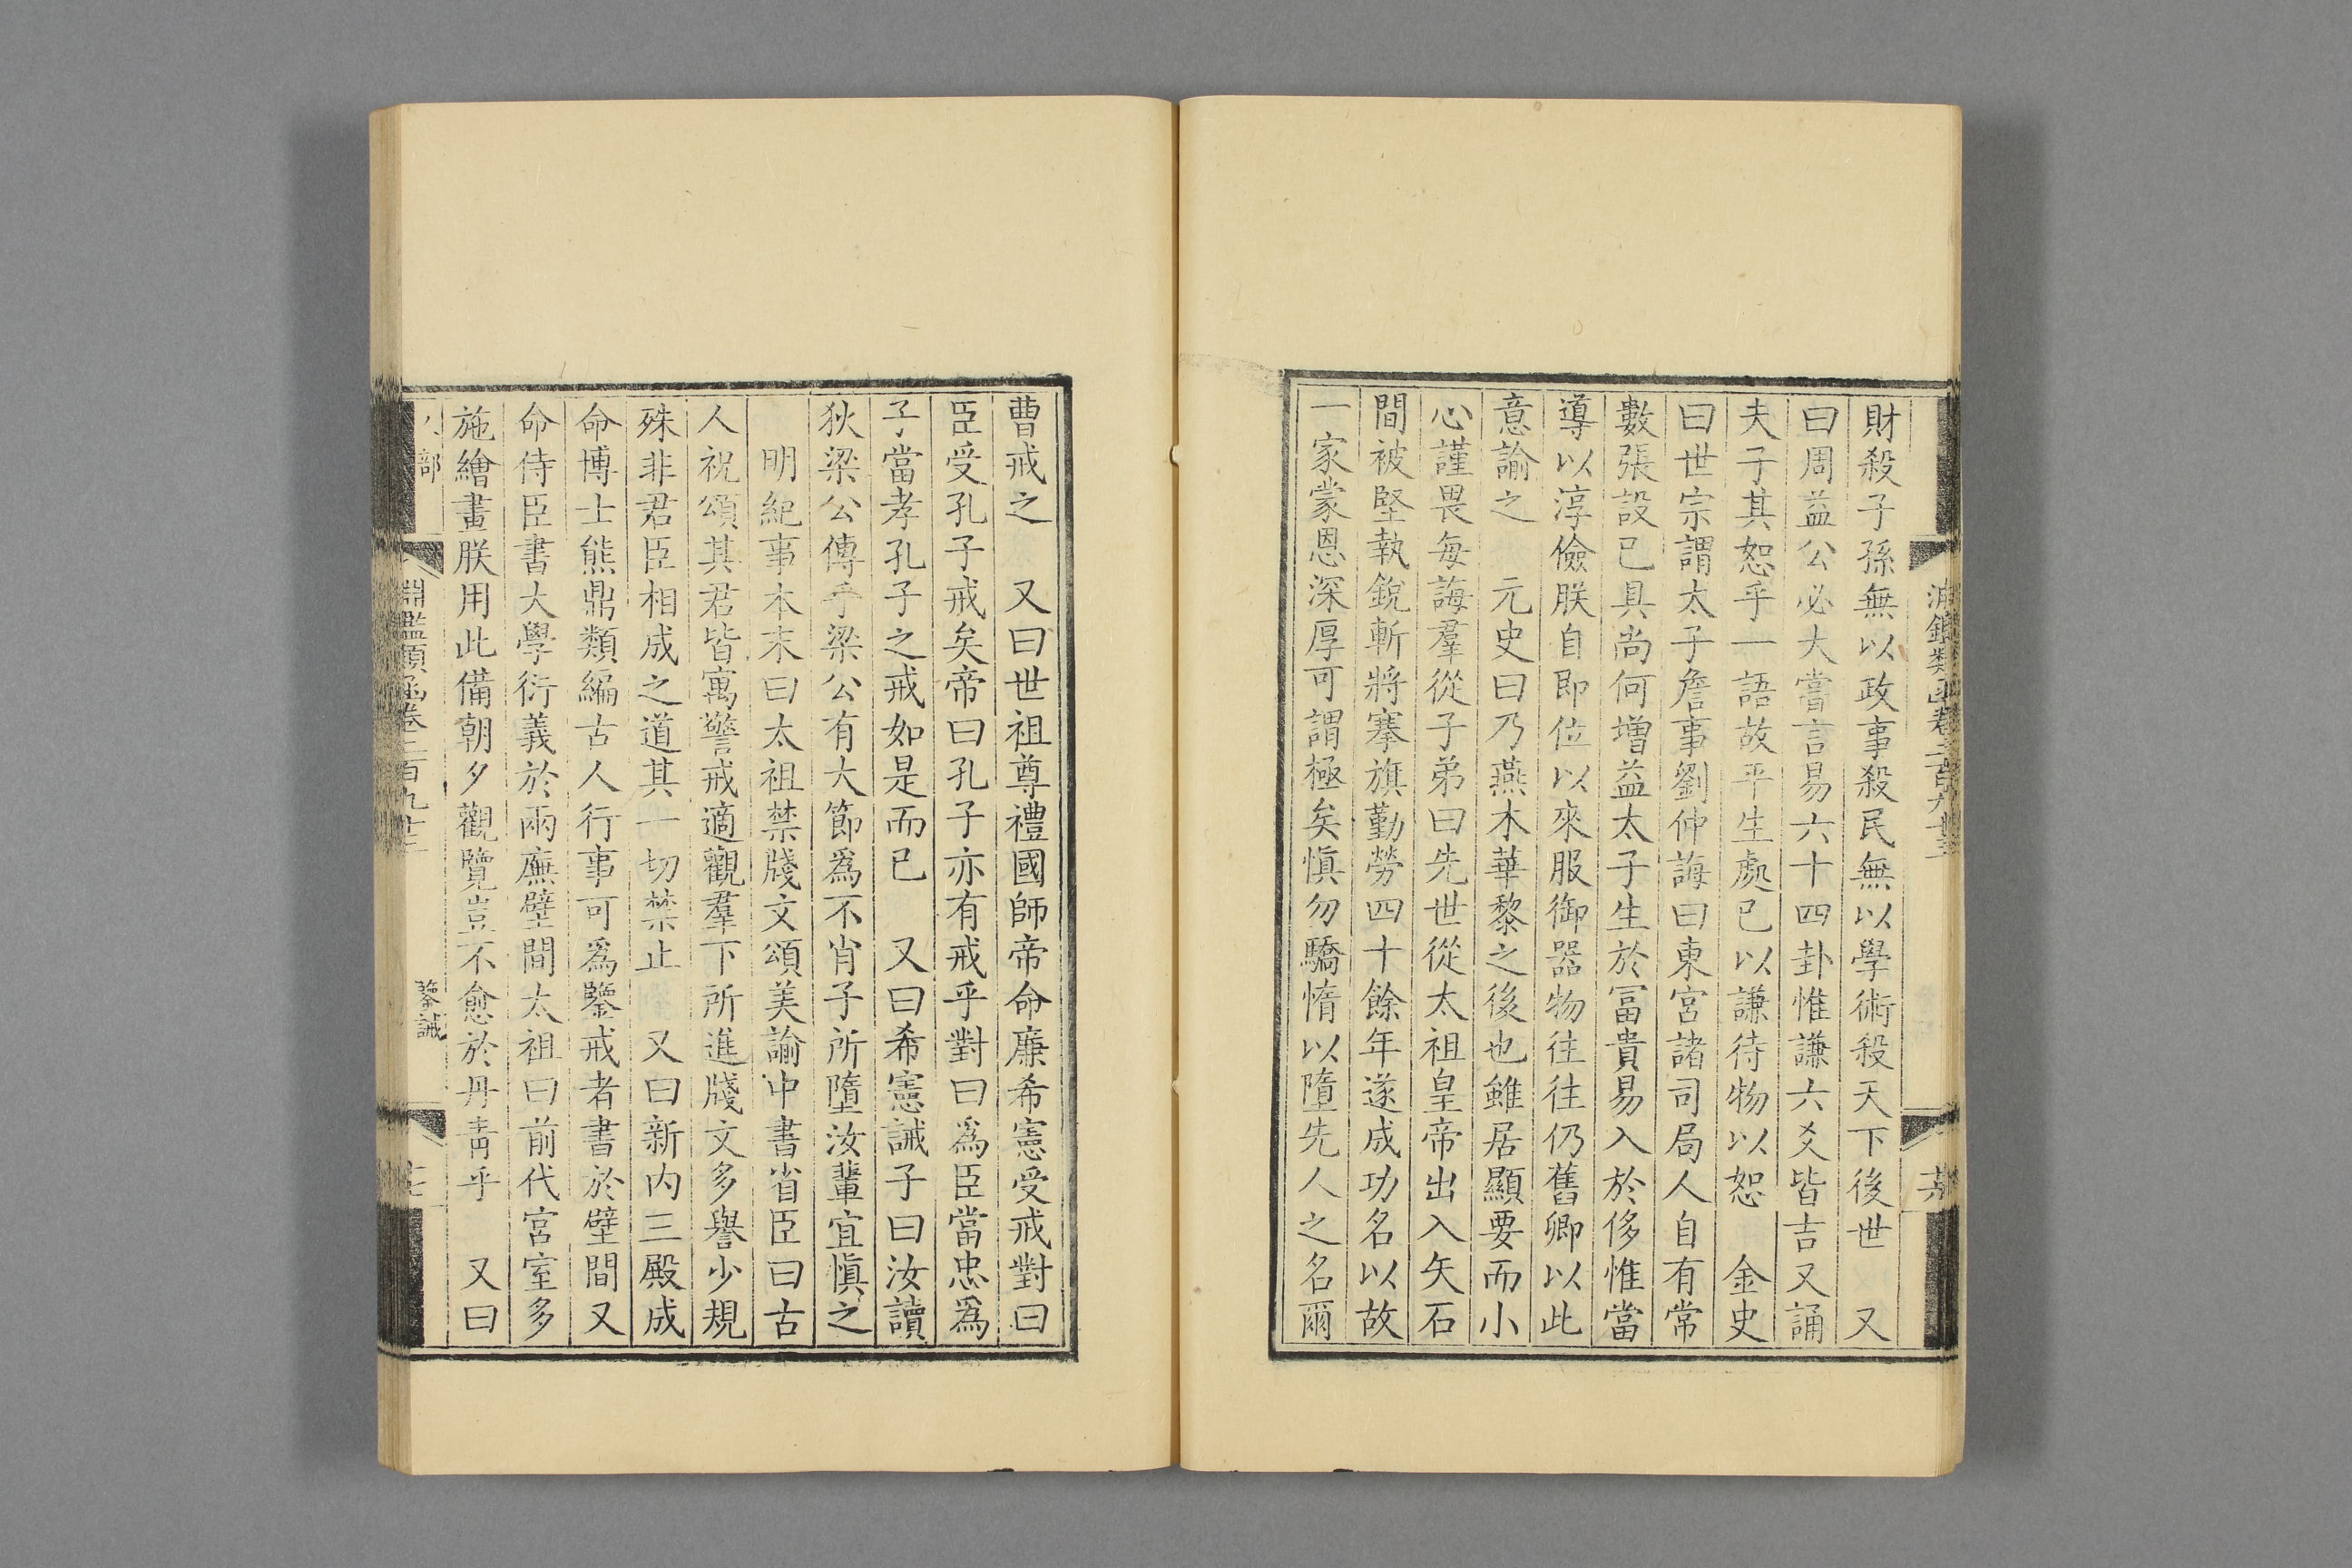 財殺子孫無以政事殺民無以學術殺天下後世　又
曰周益公必大嘗言易六十四卦惟謙六爻皆吉又誦
夫子其恕乎一語故平生處己以謙待物以恕　金史
曰世宗謂太子詹事劉仲誨曰東宮諸司局人自有常
數張設已具尚何增益太子生於冨貴易入於侈惟當
導以淳儉朕自即位以來服御器物往往仍舊卿以此
意諭之　元史曰乃燕木華黎之後也雖居顯要而小
心謹畏每誨羣從子弟曰先世從太祖皇帝出入矢石
間被堅執銳斬將搴旗勤勞四十餘年遂成功名以故
一家蒙恩深厚可謂極矣愼勿驕惰以墮先人之名爾
曹戒之　又曰世祖尊禮國師帝命廉希憲受戒對曰
臣受孔子戒矣帝曰孔子亦有戒乎對曰爲臣當忠爲
子當孝孔子之戒如是而已　又曰希憲誡子曰汝讀
狄梁公傳乎梁公有大節爲不肖子所墮汝輩宜愼之
明紀事本末曰太祖禁牋文頌美諭中書省臣曰古
人祝頌其君皆寓警戒適觀羣下所進牋文多譽少規
殊非君臣相成之道其一切禁止　又曰新内三殿成
命博士熊鼎類編古人行事可爲鑒戒者書於壁間又
命侍臣書大學衍義於兩廡壁間太祖曰前代宮室多
施繪畫朕用此備朝夕觀覽豈不愈於丹青乎　又曰
部
淵鑑類函卷二百九十三
鑒誡